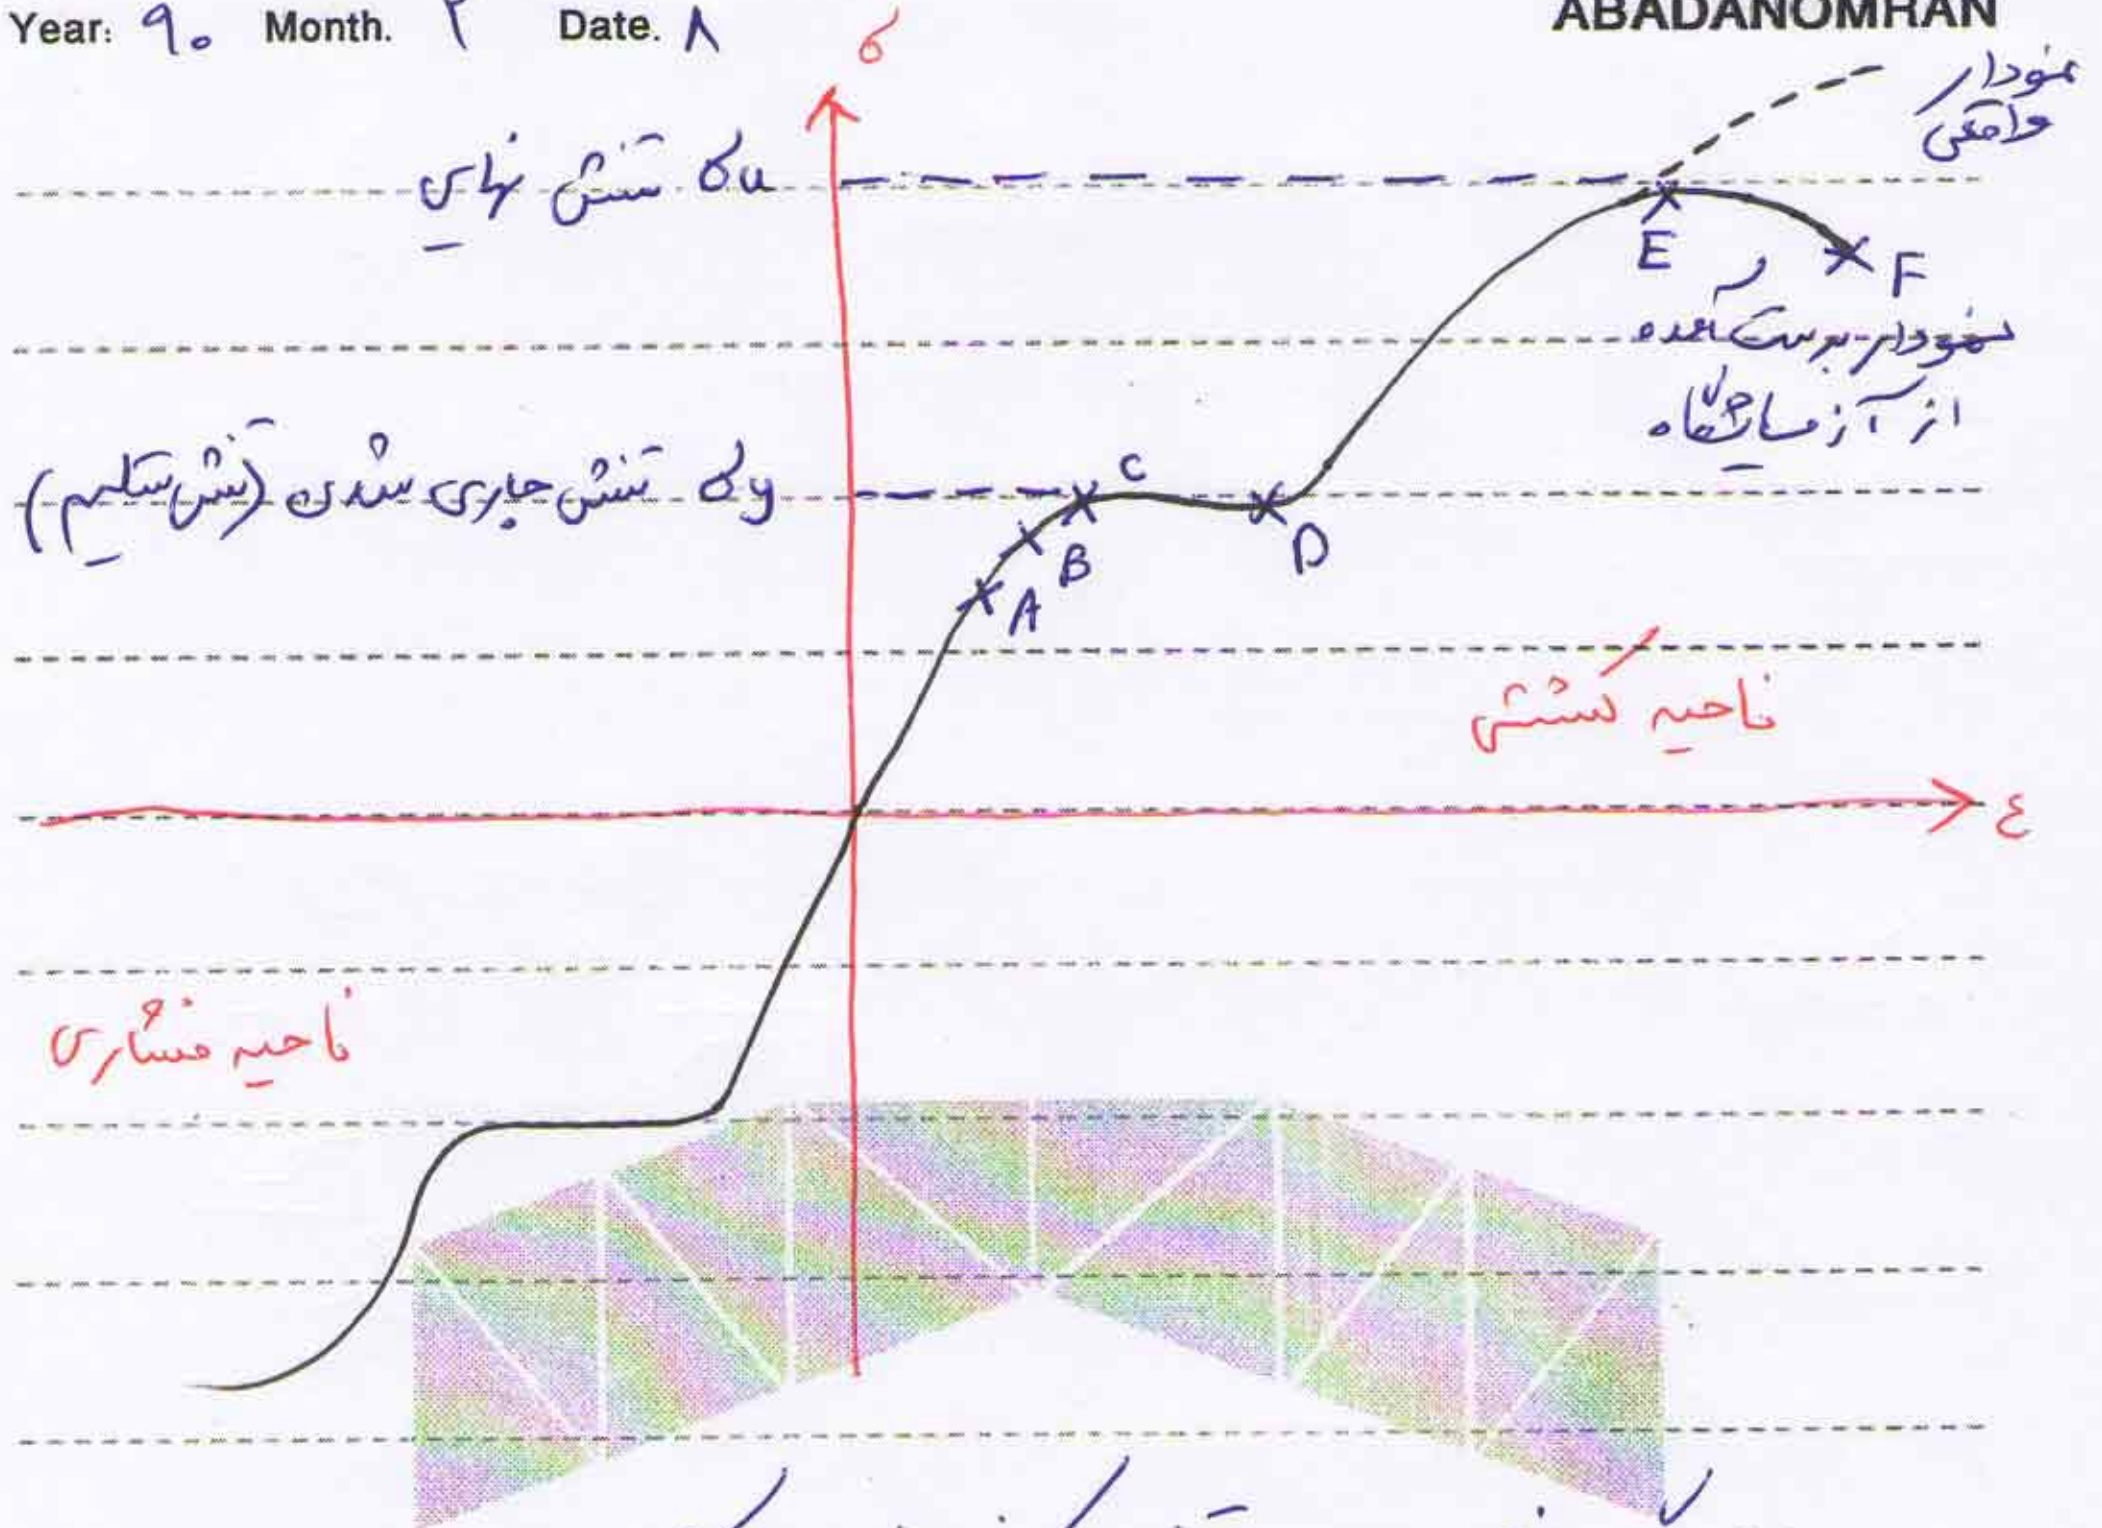 Year: ۹۰ Month. ۲ Date. ۸
ABADANOMRAN
σ
نمودار
واقعی
σu تنش نهایی
E
F
نمودار بدست آمده
از آزمایشگاه
σy تنش جاری شدن (تنش تسلیم)
C
B
D
A
ناحیه کششی
ε
ناحیه فشاری